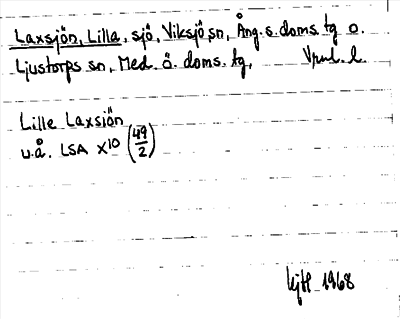 Laxsjön, Lilla, sjö, Viksjö sn, Ång. s. doms. tg o.
Ljustorps sn, Med. ö. doms. tg,
Lille Laxsjön
u.å. LSA X10 (49/2)
1968